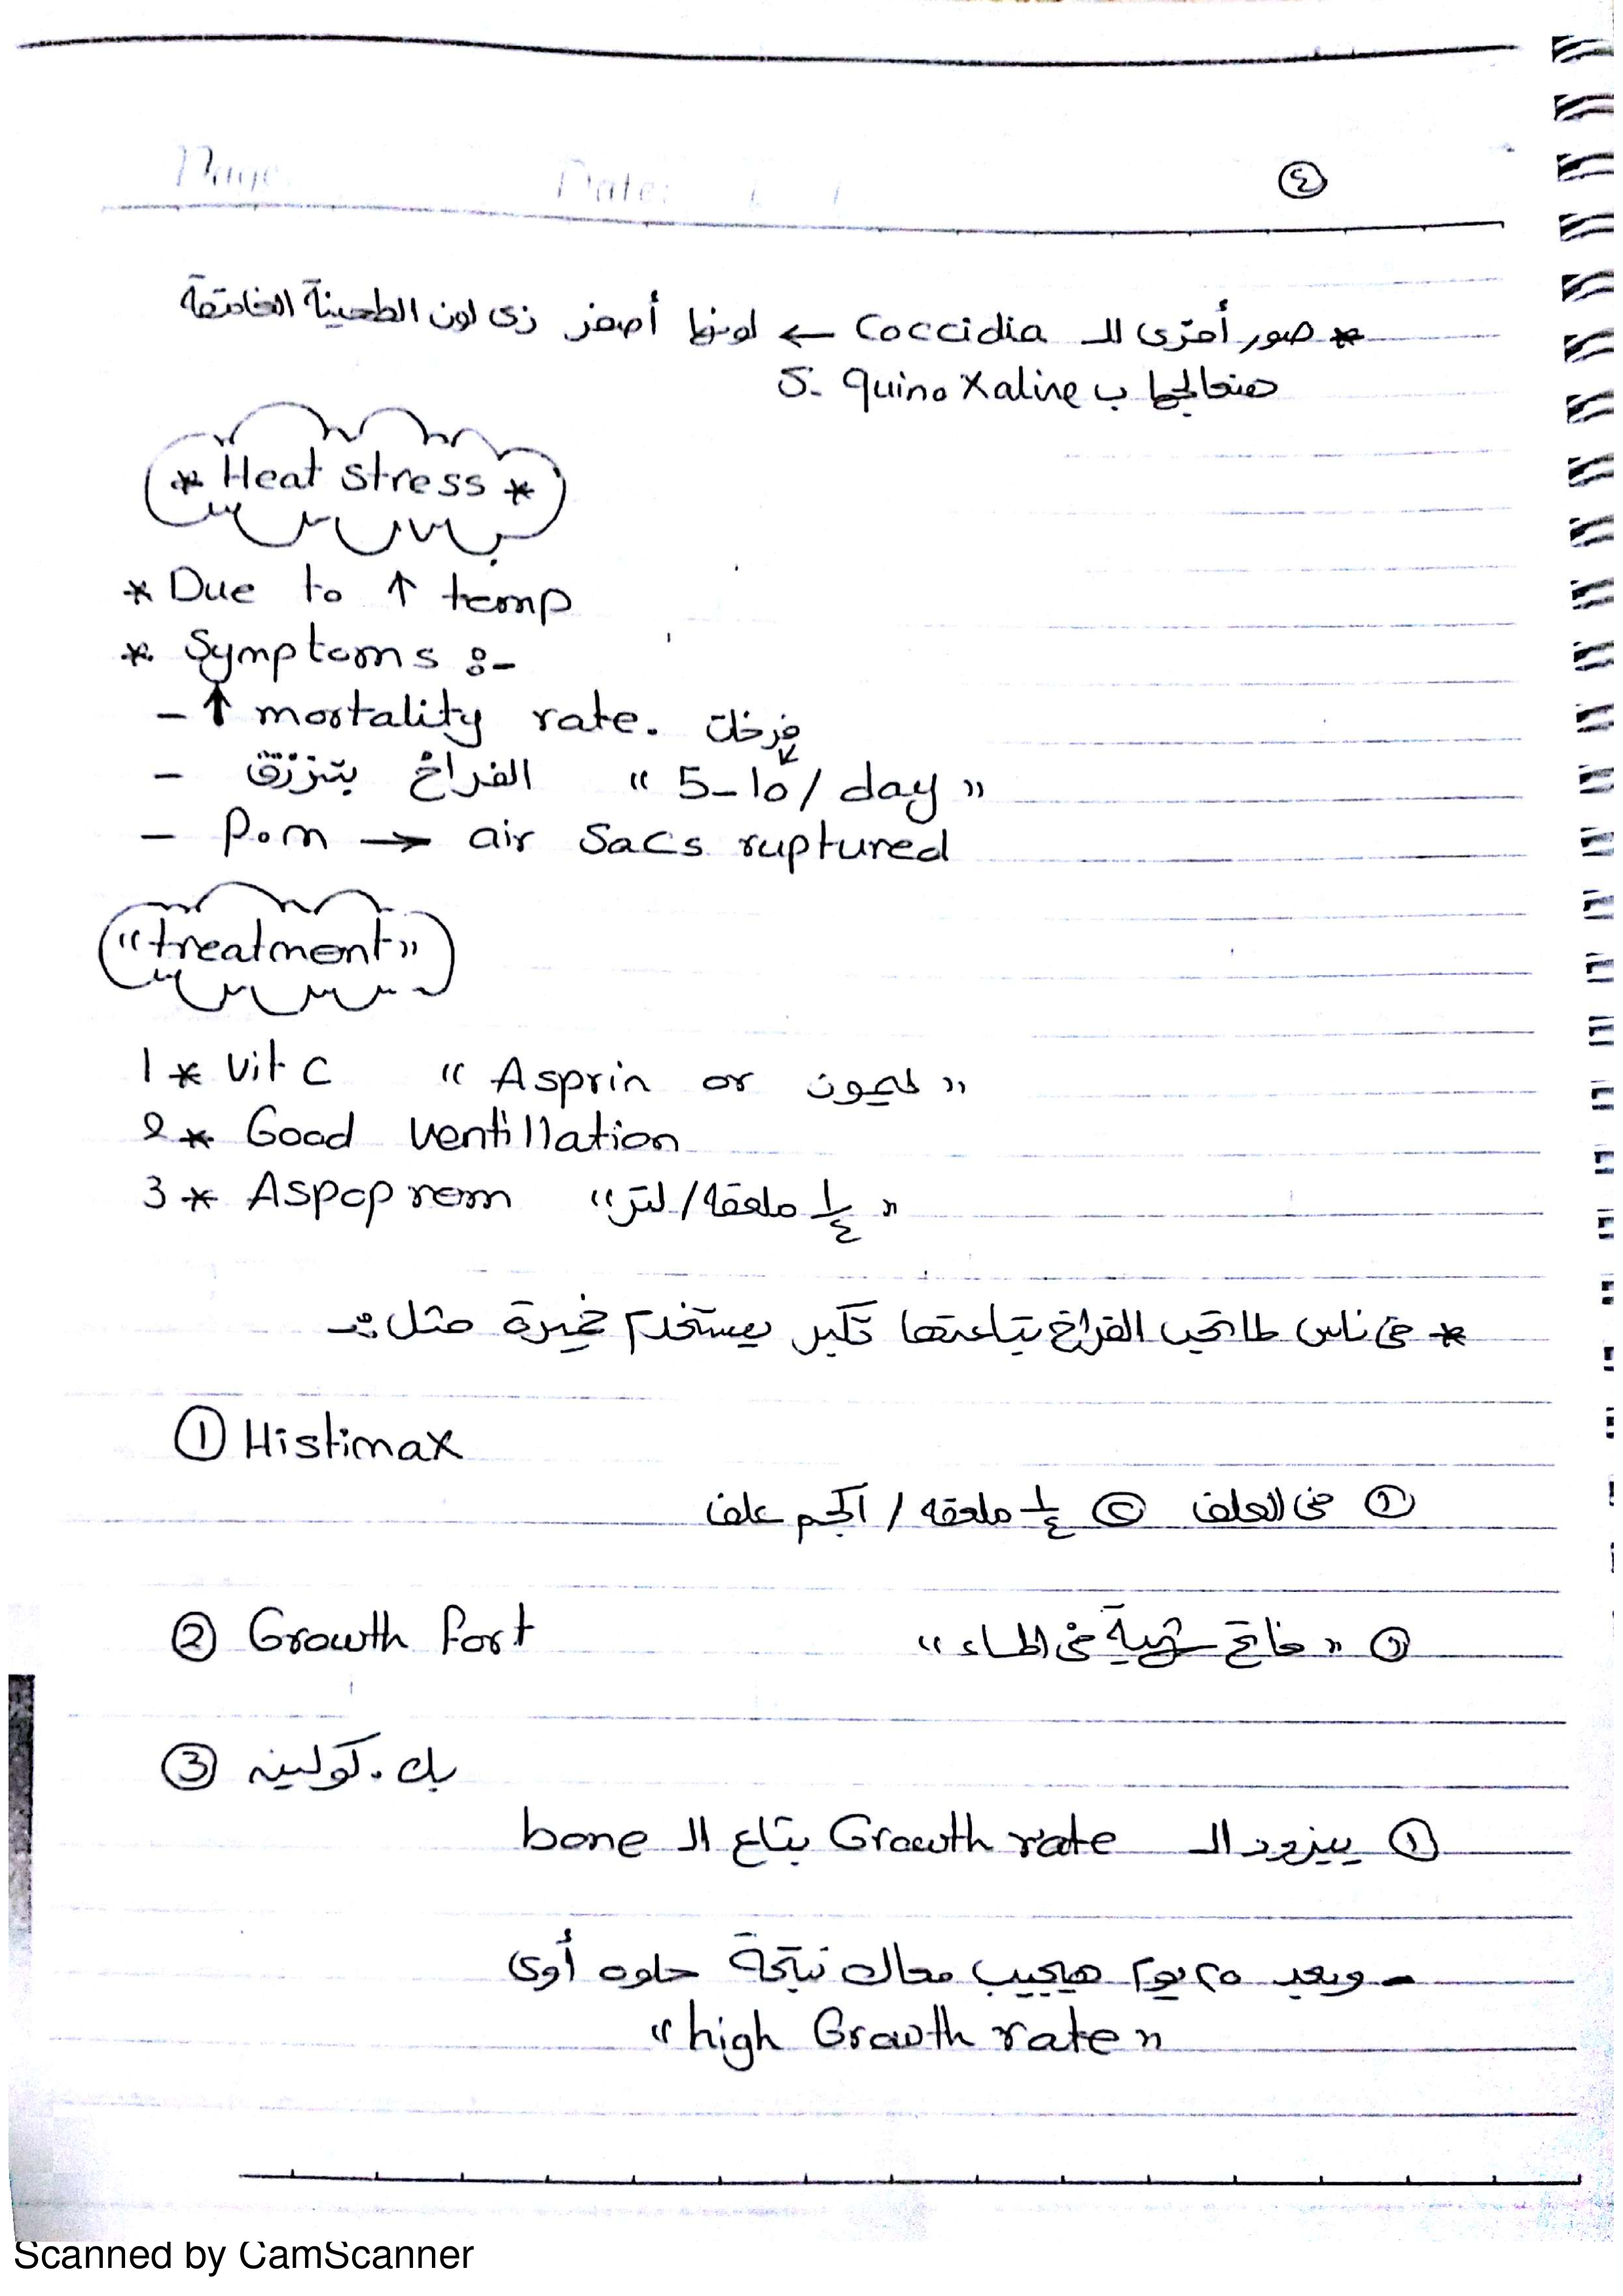 Page: Date: / /
٤
* صور أخرى لل Coccidia ← لونها أصفر زى لون الطحينة الغامقة
هنعالجها ب S. quinoxaline
* Heat stress *
* Due to ↑ temp
* Symptoms :-
- ↑ mortality rate. فرخات
- الفراخ بتزرق "5-10/ day"
- P.m → air sacs ruptured
"treatment"
1* Vit C "Asprin or ليمون"
2* Good ventillation
3* Aspoprem "١/٤ ملعقه / لتر"
* فى ناس لما تحب الفراخ بتاعتها تكبر يستخدم خميرة مثل :-
① Histimax
① فى العلف ② ١/٤ ملعقه / ١كجم علف
② Growth fort
① "فاتح شهية فى الماء"
③ بك. كولين
① بيزود ال Growth rate بتاع ال bone
- وبعد ٢٥ يوم هيجيب معاك نتيجة حلوه أوى
"high Growth rate"
Scanned by CamScanner